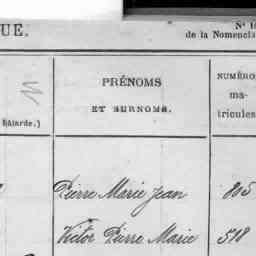 UE.
N° 1
de la Nomencla
PRÉNOMS
ET SURNOMS.
NUMÉRO
ma-
tricules
bâtarde.)
Pierre Marie Jean 805
Victor Pierre Marie 518